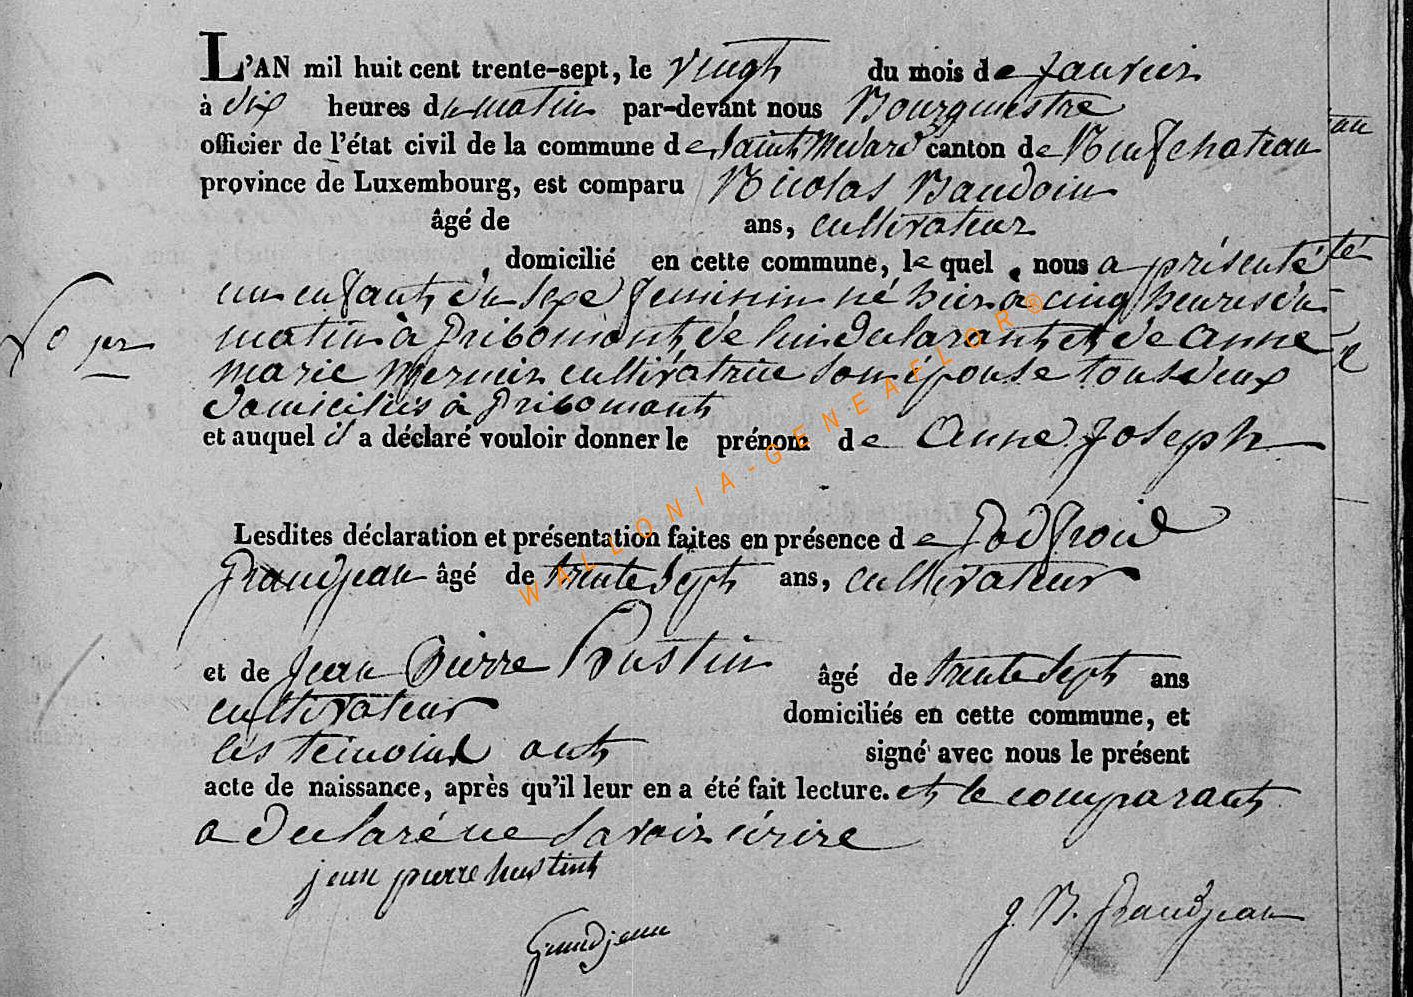 L'AN mil huit cent trente-sept, le vingt du mois de Janvier
à dix heures du matin par-devant nous Bourgmestre
officier de l'état civil de la commune de Saint Médard canton de Neufchateau
province de Luxembourg, est comparu Nicolas Baudoin
âgé de ans, cultivateur
domicilié en cette commune, lequel nous a présenté
un enfant du sexe feminin né hier à cinq heures du
matin à Gribomont de lui déclarant et de Anne
Marie cultivatrice son épouse tous deux
domiciliés à Gribomont
et auquel il a déclaré vouloir donner le prénom de Anne Joseph
Lesdites déclaration et présentation faites en présence de Godfroid
Grandjean âgé de trente Sept ans, cultivateur
et de Jean Pierre Hustin âgé de trente Sept ans
cultivateur domiciliés en cette commune, et
les témoins ont signé avec nous le présent
acte de naissance, après qu'il leur en a été fait lecture. et le comparant
a déclaré ne savoir écrire
jean pierre hustin
Grandjean
J. B. Grandjean
WALLONIA-GENEAFLOR®